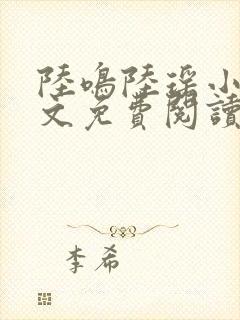 陸鳴陸瑶小
文免費閱讀
李希